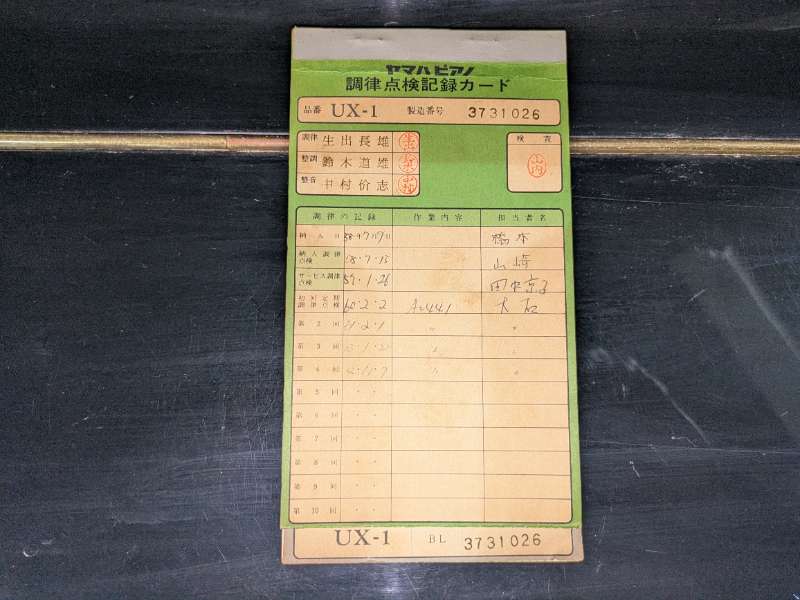 ヤマハピアノ
調律点検記録カード
品番 UX-1 製造番号 3731026
調律 生出長雄
整調 鈴木道雄
整音 村价志
検査
山内
調律の記録 作業内容 担当者名
納入日 橋本
納入調律点検 58・7・15 山崎
サービス調律点検 59・1・26 田中
初回定期調律点検 60・2・2 A=441 大石
第2回 61・2・1 〃 〃
第3回 〃
第4回 〃 〃
第5回 ・ ・
第6回 ・ ・
第7回 ・ ・
第8回 ・ ・
第9回 ・ ・
第10回 ・ ・
UX-1 BL 3731026